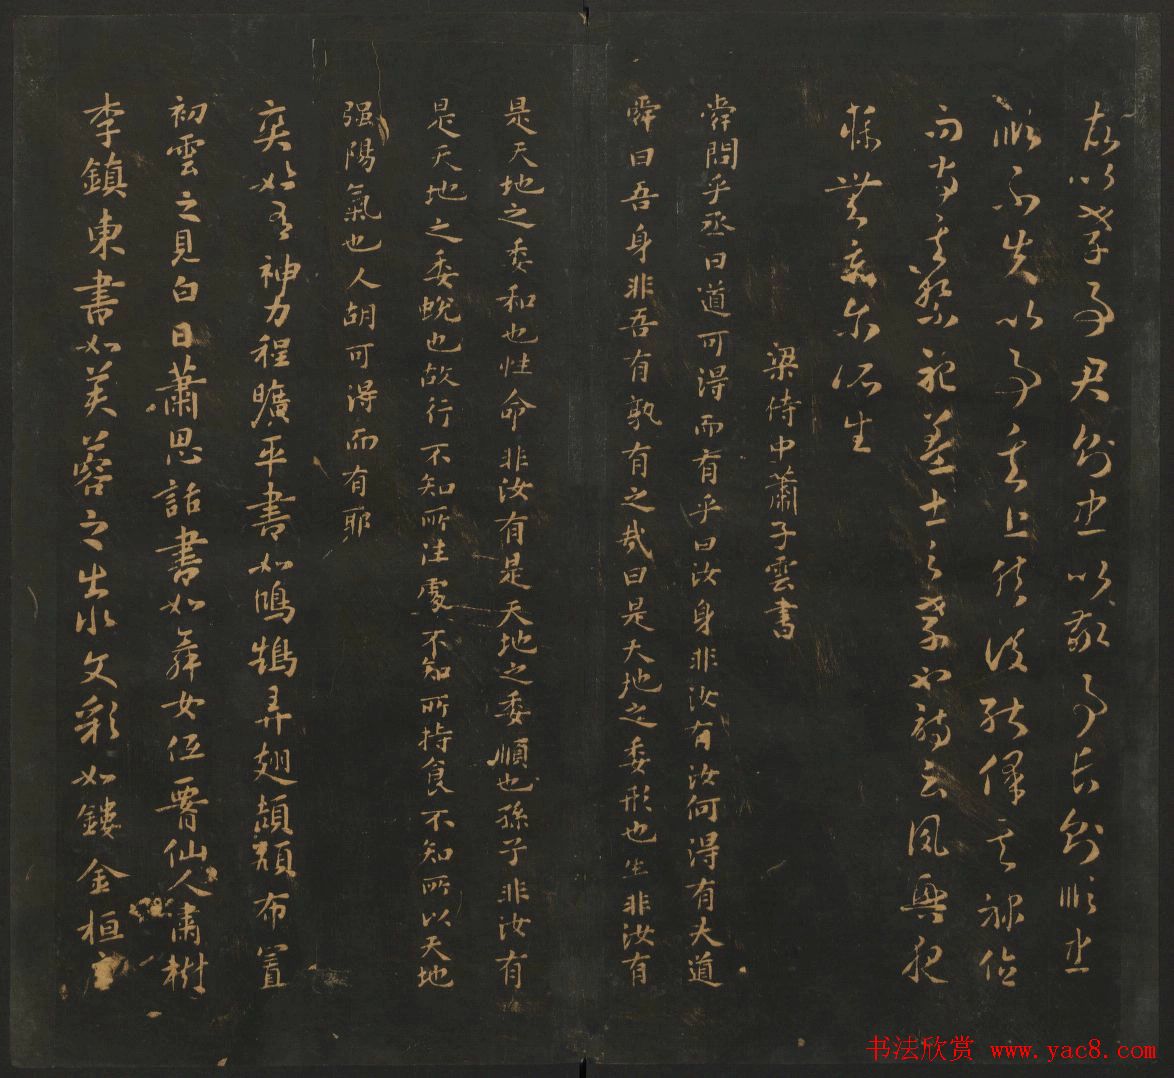 故以孝事君則忠以敬事長則順忠
順不失以事其上然後能保其祿位
而守其祭祀蓋士之孝也詩云夙興夜
寐無忝爾所生
梁侍中蕭子雲書
舜問乎丞曰道可得而有乎曰汝身非汝有汝何得有夫道
舜曰吾身非吾有孰有之哉曰是天地之委形也生非汝有
是天地之委和也性命非汝有是天地之委順也孫子非汝有
是天地之委蛻也故行不知所往處不知所持食不知所以天地
强陽氣也人胡可得而有耶
奕如有神力程曠平書如鴻鵠弄翅頡頏布置
初雲之見白日蕭思話書如舞女低腰仙人嘯樹
李鎮東書如芙蓉之出水文彩如鏤金桓玄
书法欣赏 www.yac8.com